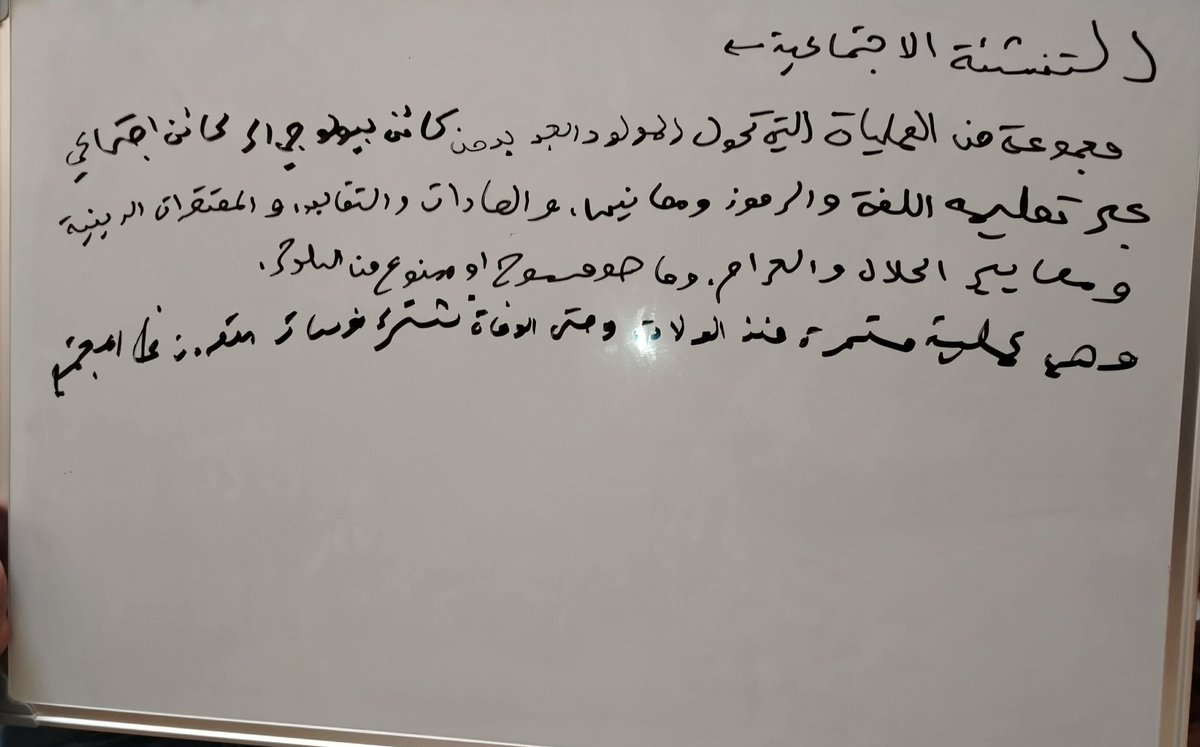 التنشئة الاجتماعية ←
مجموعة من العمليات التي تحول المولود الجديد من كائن بيولوجي الى كائن اجتماعي
عبر تعليمه اللغة والرموز ومعانيها، والعادات والتقاليد، والمعتقدات الدينية
ومعايير الحلال والحرام، وما هو مسموح او ممنوع من السلوك.
وهي عملية مستمرة منذ الولادة وحتى الوفاة تشترك مؤسسات في المجتمع